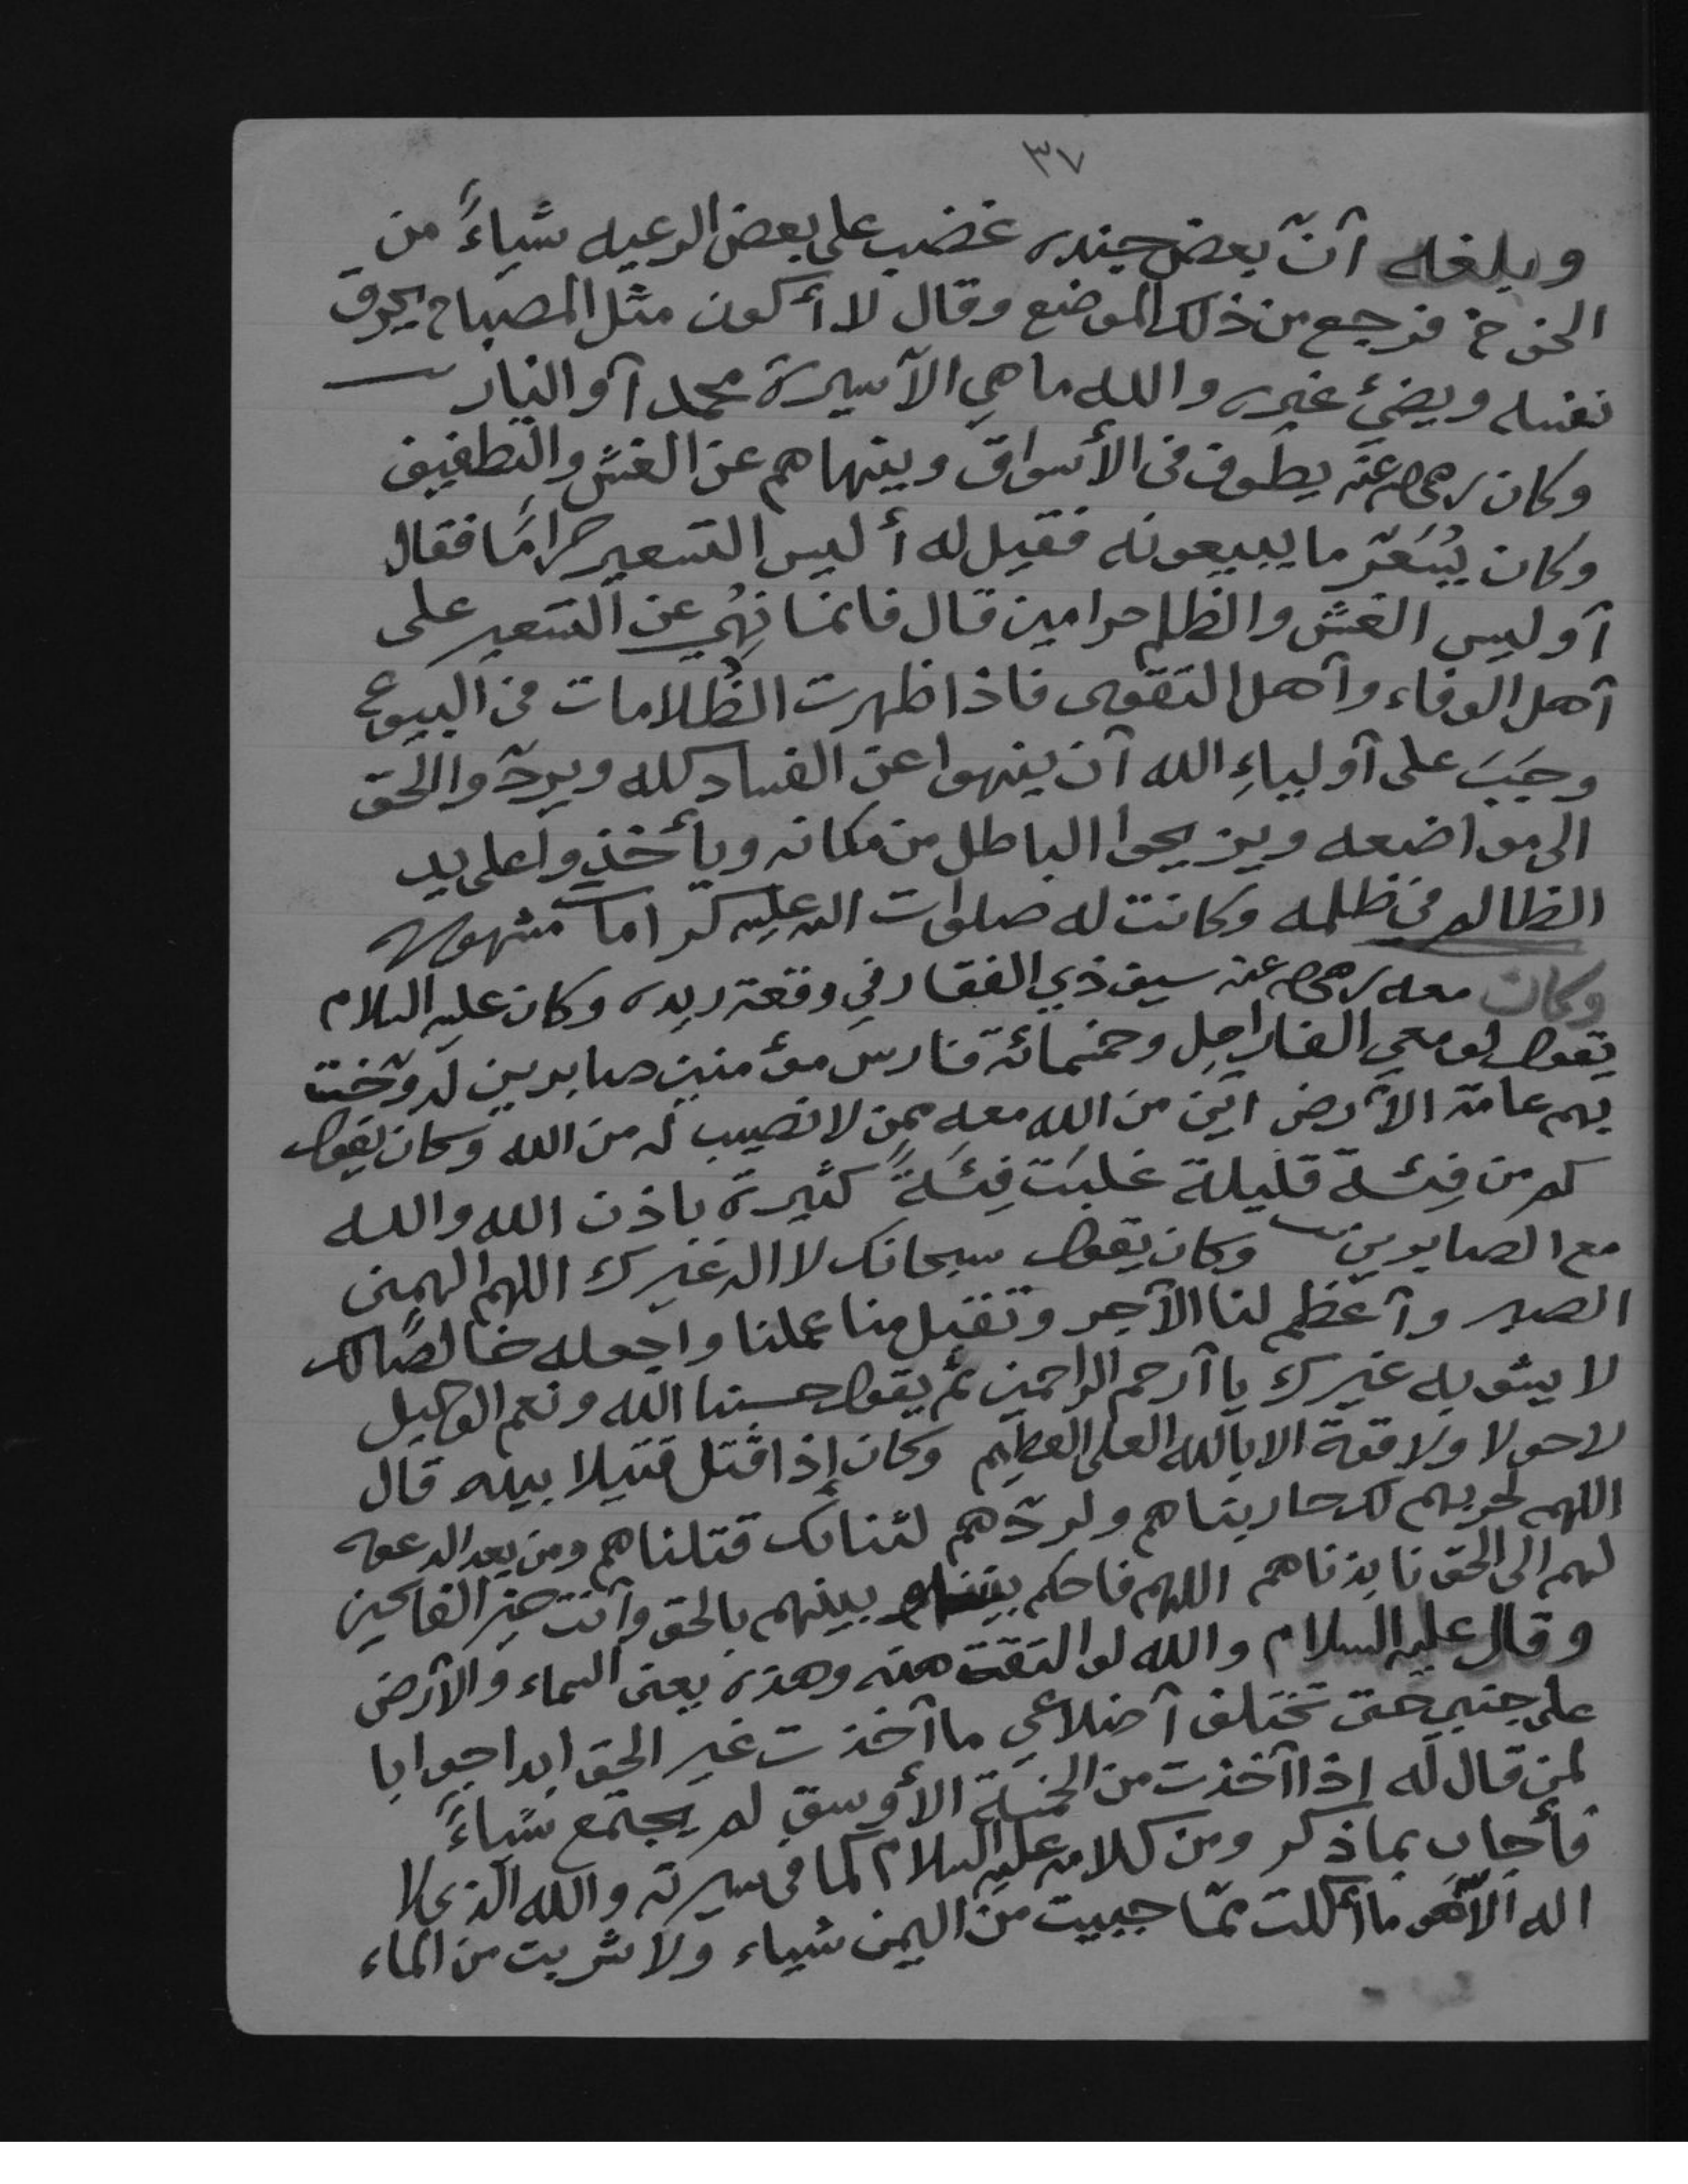 ٣٧
وبلغه آنّ بعض جنده غضب على بعض الرعيه شياءً من
الخوخ فرجع من ذلك الموضع وقال لا أكون مثل المصباح يحرق
نفسه ويضئ غيره والله ما هي الآ سيرة محمد آو النار
وكان رضي الله عنه يطوف في الأسواق وينهاهم عن الغش والتطفيف
وكان يُسَعّر ما يبيعونه فقيل له أليس التسعير حرامًا فقال
آو ليس الغش والظلم حرامين قال فانما نُهِي عن التسعير على
آهل الوفاء وآهل التقوى فاذا ظهرت الظُلامات في البيوع
وجَبَ على آولياءِ الله آن ينهوا عن الفساد كله ويردّوا الحق
الى مواضعه ويزيحوا الباطل من مكانه ويأخذوا على يد
الظالم في ظلمه وكانت له صلوات الله عليه كرامات مشهوره
وكان معه رضي الله عنه سيف ذي الفقار في وقعة ريده وكان عليه السلام
يقول لو معي الفا راجل وخمسمائة فارس مؤمنين صابرين لدوّخت
بهم عامة الأرض اين من الله معه ممن لا نصيب له من الله وكان يقول
كم من فِئَة قليلة غلبَت فِئَةً كثيرة باذن الله والله
مع الصابرين وكان يقول سبحانك لا اله غيرك اللهم الهمني
الصبر وآعظم لنا الآجر وتقبل منا عملنا واجعله خالصًا لك
لا يشوبه غيرك يا آرحم الراحمين ثم يقول حسبنا الله ونعم الوكيل
لا حولا ولا قوة الا بالله العلي العظيم وكان إذا قتل قتيلا بيده قال
اللهم لحربهم لك حاربناهم ولردّهم لثنائك قتلناهم ومن بعد الدعوه
لهم الى الحق نابذناهم اللهم فاحكم بيننا وبينهم بالحق وآنت خير الفاتحين
وقال عليه السلام والله لو التقت هذه وهذه يعني السماء والآرض
على جنبي حتى تختلف آضلاعي ما آخذت غير الحق ابدا جوابا
لمن قال له اذا آخذت من الخمسة الأوسق لم يجتمع شياءً
فأجاب بما ذكر ومن كلامه عليه السلام كما في سيرته والله الذي لا
اله الآ هو ما أكلت ممّا جبيت من اليمن شياء ولا شربت من الماء